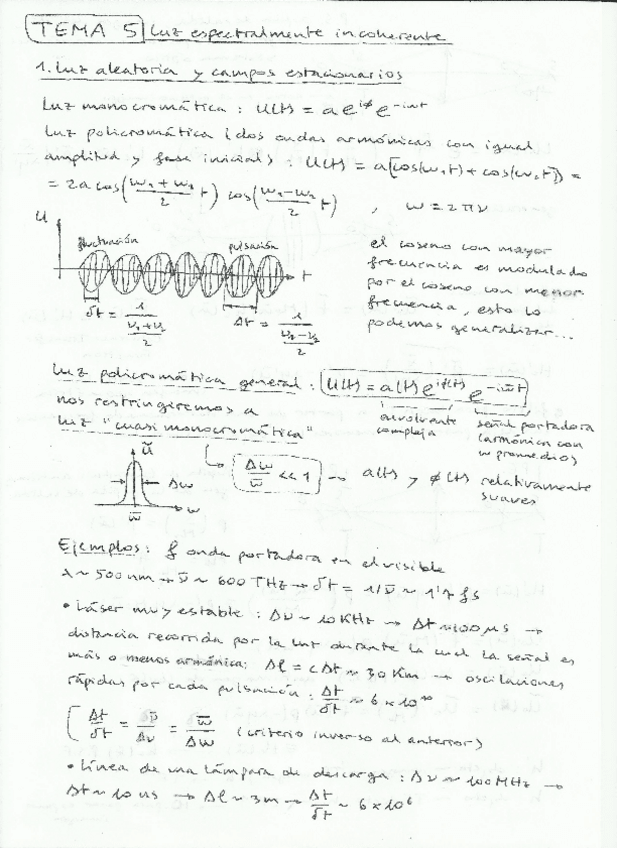 TEMA 5 Luz espectralmente incoherente
1. Luz aleatoria y campos estacionarios
Luz monocromática : U(t) = a e^{iφ} e^{-iωt}
Luz policromática (dos ondas armónicas con igual
amplitud y fase inicial) : U(t) = a[cos(ω₁t) + cos(ω₂t)] =
= 2a cos(\frac{ω₁+ω₂}{2} t) cos(\frac{ω₁-ω₂}{2} t) , ω = 2πν
U
fluctuación pulsación
t
δt = \frac{1}{\frac{ν₁+ν₂}{2}} Δt = \frac{1}{\frac{ν₁-ν₂}{2}}
el coseno con mayor
frecuencia es modulado
por el coseno con menor
frecuencia, esto lo
podemos generalizar...
Luz policromática general : U(t) = a(t) e^{iφ(t)} e^{-iω̄t}
envolvente
compleja
señal portadora
(armónica con
ω promedio)
nos restringiremos a
luz "cuasimonocromática"
Ũ
Δω
ω̄
ω
\frac{Δω}{ω̄} << 1 → a(t) y φ(t) relativamente
suaves
Ejemplos : onda portadora en el visible
λ ~ 500 nm → ν̄ ~ 600 THz → δt = 1/ν̄ ~ 1'7 fs
• Láser muy estable : Δν ~ 10 KHz → Δt ~ 100 μs →
distancia recorrida por la luz durante la cual la señal es
más o menos armónica: Δl = cΔt ~ 30 Km → oscilaciones
rápidas por cada pulsación : \frac{Δt}{δt} ~ 6 x 10¹⁰
[ \frac{Δt}{δt} = \frac{ν̄}{Δν} = \frac{ω̄}{Δω} (criterio inverso al anterior)
• Línea de una lámpara de descarga : Δν ~ 100 MHz →
Δt ~ 10 ns → Δl ~ 3m → \frac{Δt}{δt} ~ 6 x 10⁶